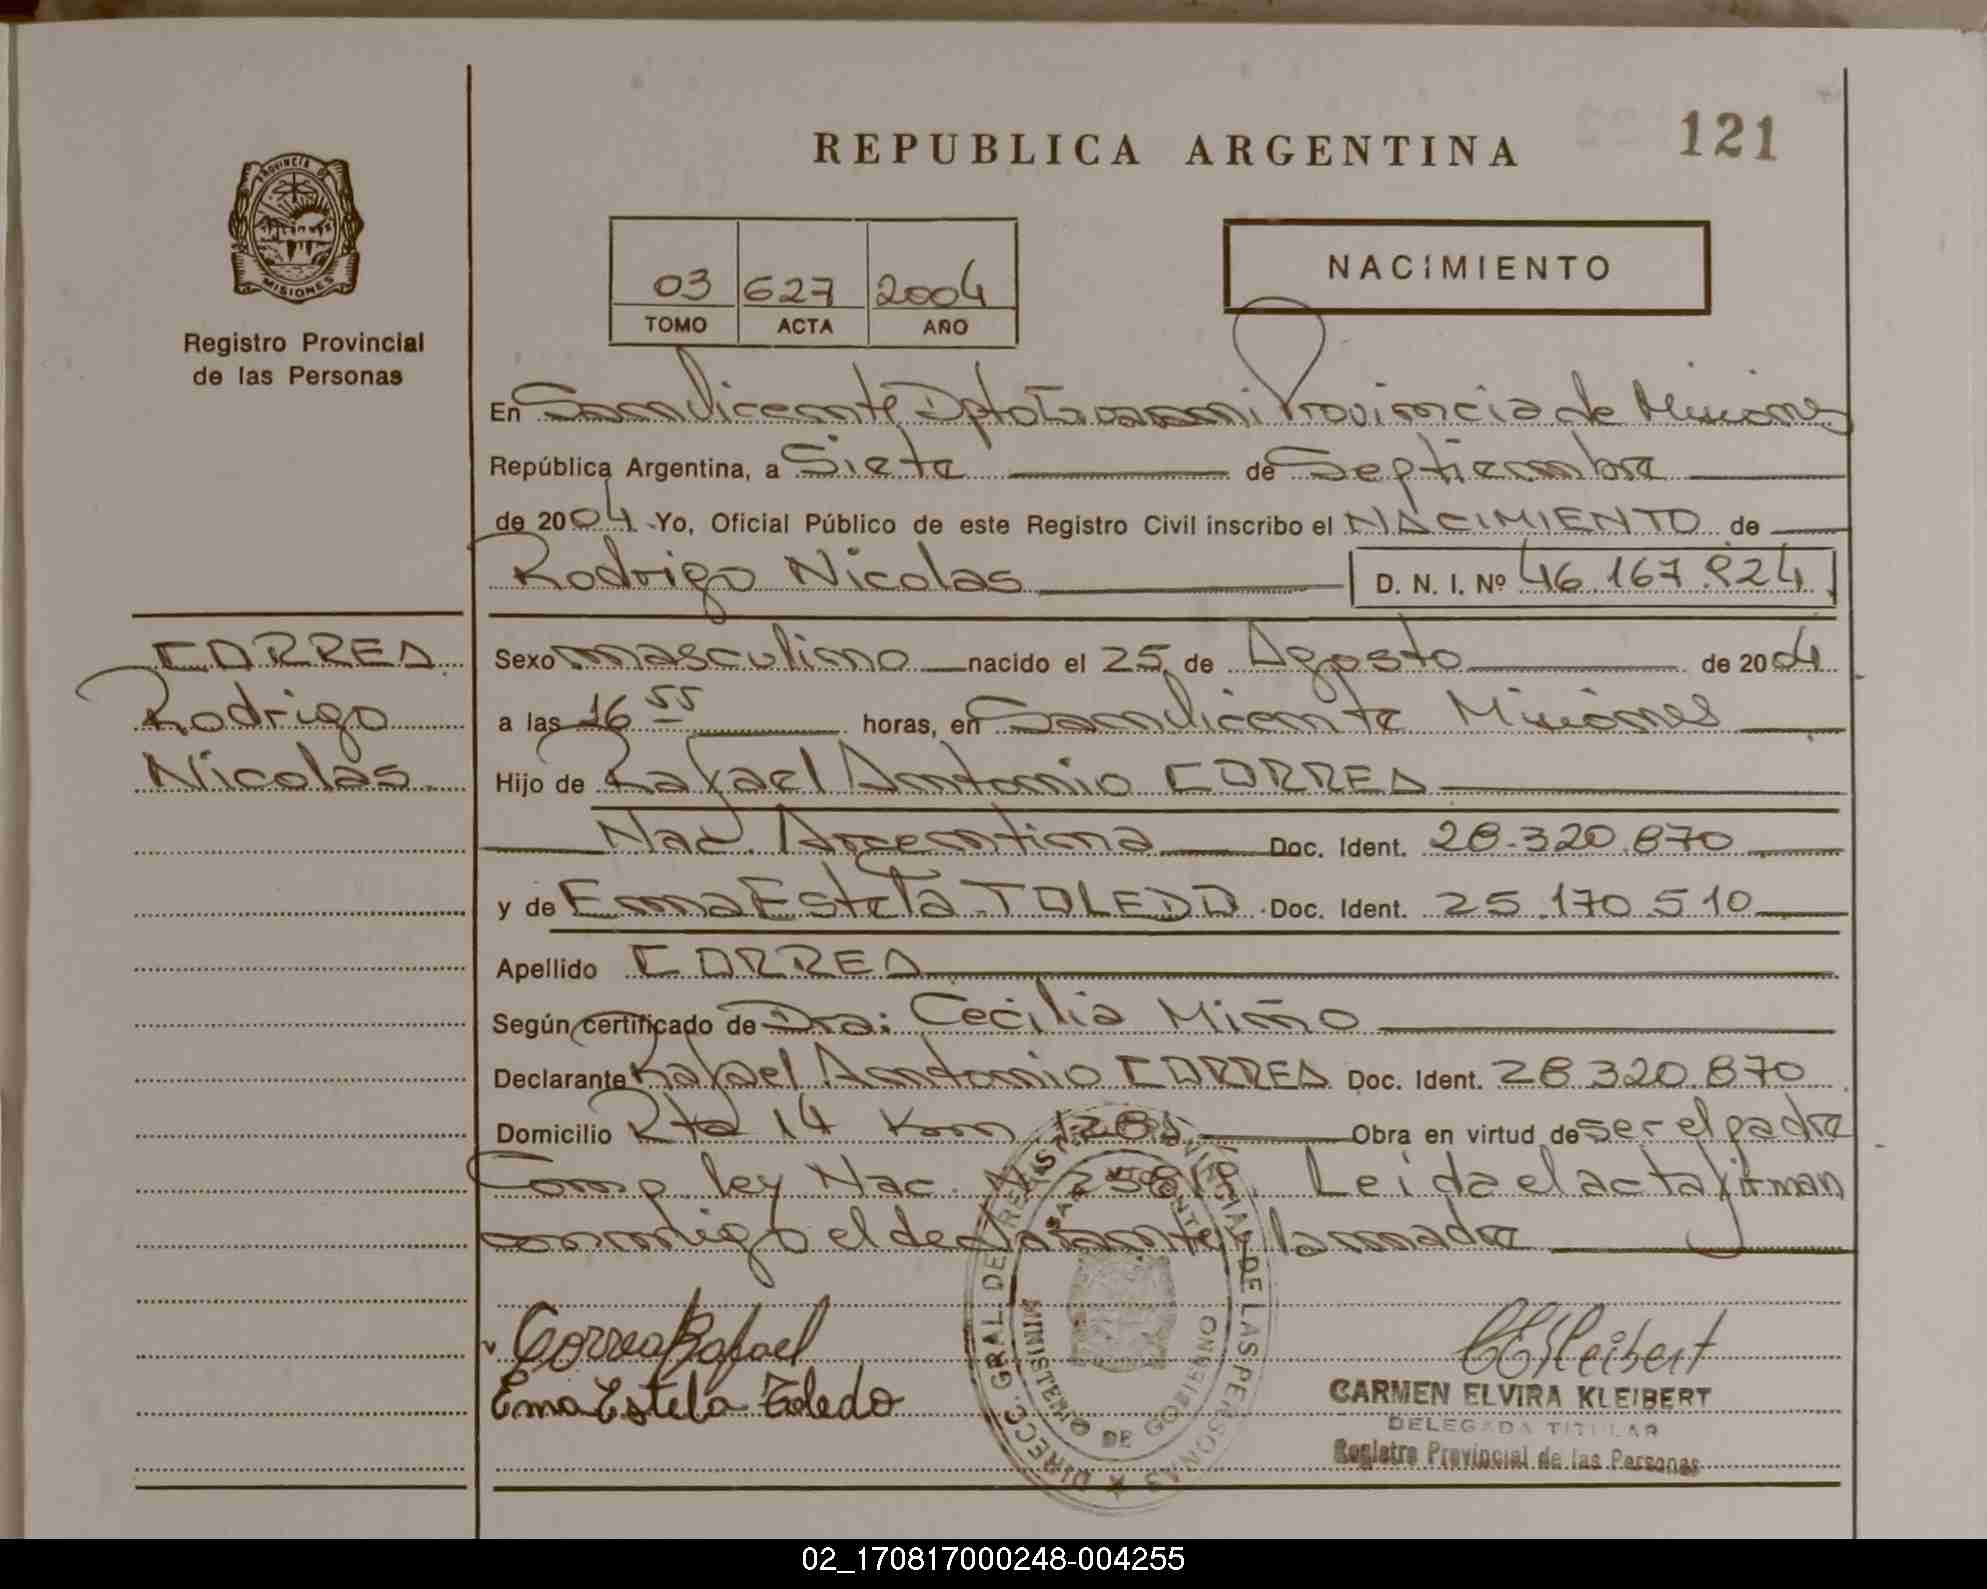 REPUBLICA ARGENTINA 121
PROVINCIA DE MISIONES
Registro Provincial
de las Personas
03 627 2004
TOMO ACTA AÑO
NACIMIENTO
En San Vicente Dpto Guarani Provincia de Misiones
República Argentina, a Siete de Septiembre
de 2004 Yo, Oficial Público de este Registro Civil inscribo el NACIMIENTO de
Rodrigo Nicolas D. N. I. Nº 46.167.824
CORREA
Rodrigo
Nicolas
Sexo masculino nacido el 25 de Agosto de 2004
a las 16 55 horas, en San Vicente Misiones
Hijo de Rafael Antonio CORREA
Nac. Argentina Doc. Ident. 28.320.870
y de Ema Estela TOLEDO Doc. Ident. 25.170.510
Apellido CORREA
Según certificado de Dra: Cecilia Miño
Declarante Rafael Antonio CORREA Doc. Ident. 28.320.870
Domicilio Rta 14 Km 1281 Obra en virtud de ser el padre
Comp. ley Nac. Nº 25819. Leida el acta firman
conmigo el declarante y la madre
Correa Rafael
Ema Estela Toledo
CEKleibert
CARMEN ELVIRA KLEIBERT
DELEGADA TITULAR
Registro Provincial de las Personas
DIRECC. GRAL DE REGISTRO PROVINCIAL DE LAS PERSONAS
SAN VICENTE
MINISTERIO DE GOBIERNO
02_170817000248-004255